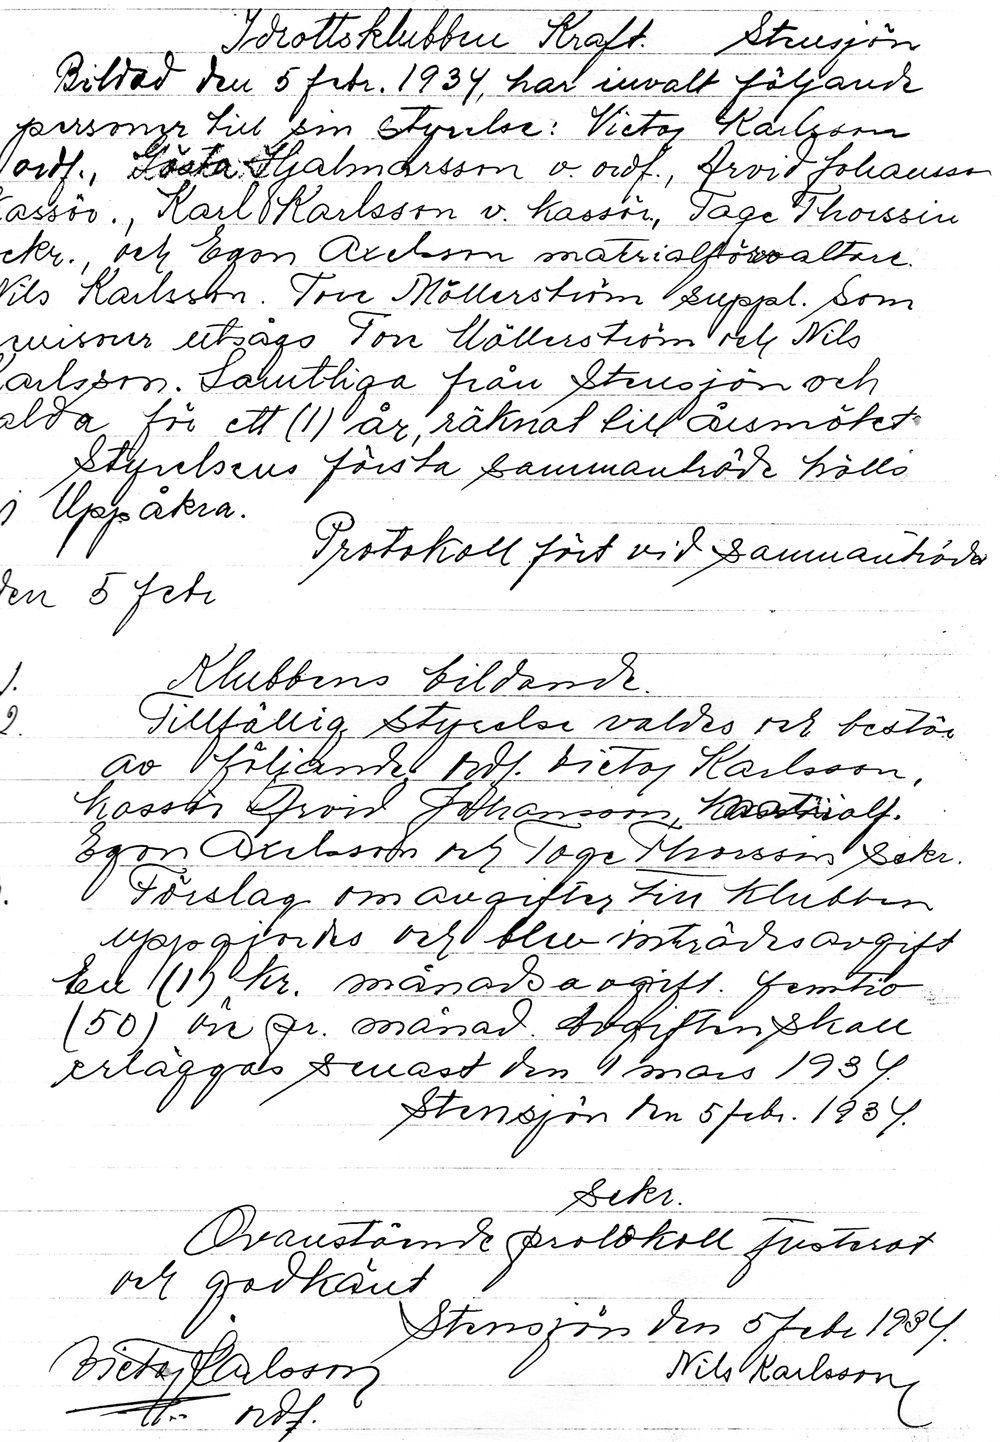 Idrottsklubben Kraft. Stensjön
Bildad den 5 febr. 1934, har invalt följande
personer till sin styrelse: Victor Karlsson
ordf., Gösta Hjalmarsson v. ordf., Arvid Johansson
kassör., Karl Karlsson v. kassör, Tage Thorssin
ekr., och Egon Axelsson matrialförvaltare.
Nils Karlsson. Tore Möllerström suppl. Som
evisorer utsågs Tore Möllerström och Nils
Karlsson. Samtliga från Stensjön och
alda för ett (1) år, räknat till årsmötet
Styrelsens första sammanträde hölls
i Uppåkra.
Protokoll fört vid sammanträde
den 5 febr
1. Klubbens bildande.
2. Tillfällig styrelse valdes och bestör
av följande. ordf. Victor Karlsson,
kassör Arvid Johansson, matrialf.
Egon Axelsson och Tage Thorssin sekr.
Förslag om avgifter till klubben
uppgjordes och blev inträdesavgift
En (1) kr. månadsavgift. femtio
(50) öre pr. månad. Avgiften skall
erläggas senast den 1 mars 1934.
Stensjön den 5 febr. 1934.
Sekr.
Ovanstående protokoll justerat
och godkänt
Stensjön den 5 febr 1934.
Victor Karlsson Nils Karlsson
ordf.